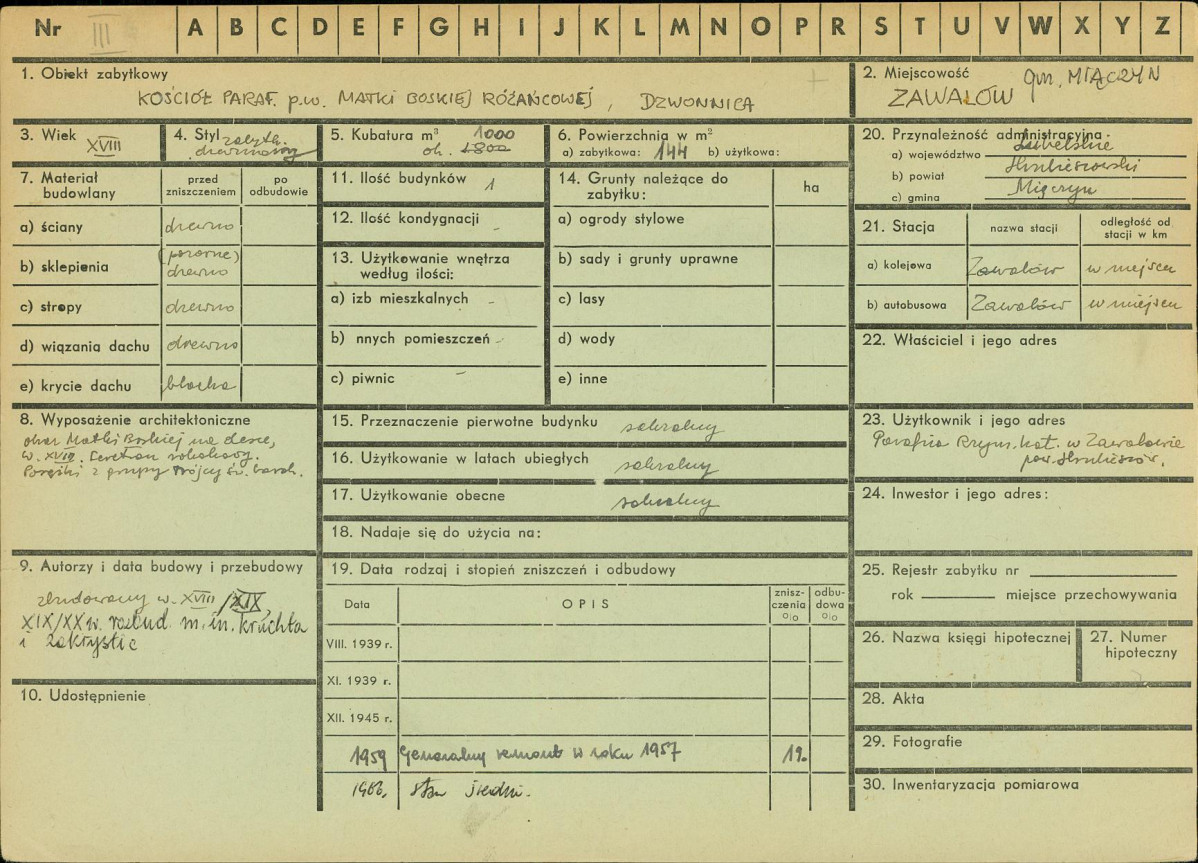 Nr III A B C D E F G H I J K L M N O P R S T U V W X Y Z
1. Obiekt zabytkowy
KOŚCIÓŁ PARAF. p.w. MATKI BOSKIEJ RÓŻAŃCOWEJ, DZWONNICA
2. Miejscowość gm. MIĄCZYN
ZAWALÓW
3. Wiek
XVIII
4. Styl zabytk.
drewniany
5. Kubatura m³ 1000
ok. 1800
6. Powierzchnia w m²
a) zabytkowa: 144 b) użytkowa:
20. Przynależność administracyjna.
a) województwo Lubelskie
b) powiat Hrubieszowski
c) gmina Miączyn
7. Materiał budowlany
przed zniszczeniem
po odbudowie
a) ściany drewno
b) sklepienia (pozorne) drewno
c) stropy drewno
d) wiązania dachu drewno
e) krycie dachu blacha
11. Ilość budynków 1
12. Ilość kondygnacji -
13. Użytkowanie wnętrza
według ilości:
a) izb mieszkalnych -
b) nnych pomieszczeń -
c) piwnic -
14. Grunty należące do
zabytku:
ha
a) ogrody stylowe
b) sady i grunty uprawne
c) lasy
d) wody
e) inne
21. Stacja
nazwa stacji
odległość od
stacji w km
a) kolejowa Zawalów w miejscu
b) autobusowa Zawalów w miejscu
22. Właściciel i jego adres
8. Wyposażenie architektoniczne
obraz Matki Boskiej na desce,
w. XVII. Feretron rokokowy.
z grupy Trójcy św. barok.
15. Przeznaczenie pierwotne budynku sakralny
16. Użytkowanie w latach ubiegłych sakralny
17. Użytkowanie obecne sakralny
18. Nadaje się do użycia na:
23. Użytkownik i jego adres
Parafia Rzym. Kat. w Zawalowie
pow. Hrubieszów.
24. Inwestor i jego adres:
9. Autorzy i data budowy i przebudowy
zbudowany w. XVIII/XIX,
XIX/XX w. rozbud. m. in. kruchta
i zakrystie
10. Udostępnienie
19. Data rodzaj i stopień zniszczeń i odbudowy
Data
OPIS
znisz-
czenia
%
odbu-
dowa
%
VIII. 1939 r.
XI. 1939 r.
XII. 1945 r.
1959 Generalny remont w roku 1957 1%
1966. stan średni.
25. Rejestr zabytku nr
rok miejsce przechowywania
26. Nazwa księgi hipotecznej
27. Numer
hipoteczny
28. Akta
29. Fotografie
30. Inwentaryzacja pomiarowa